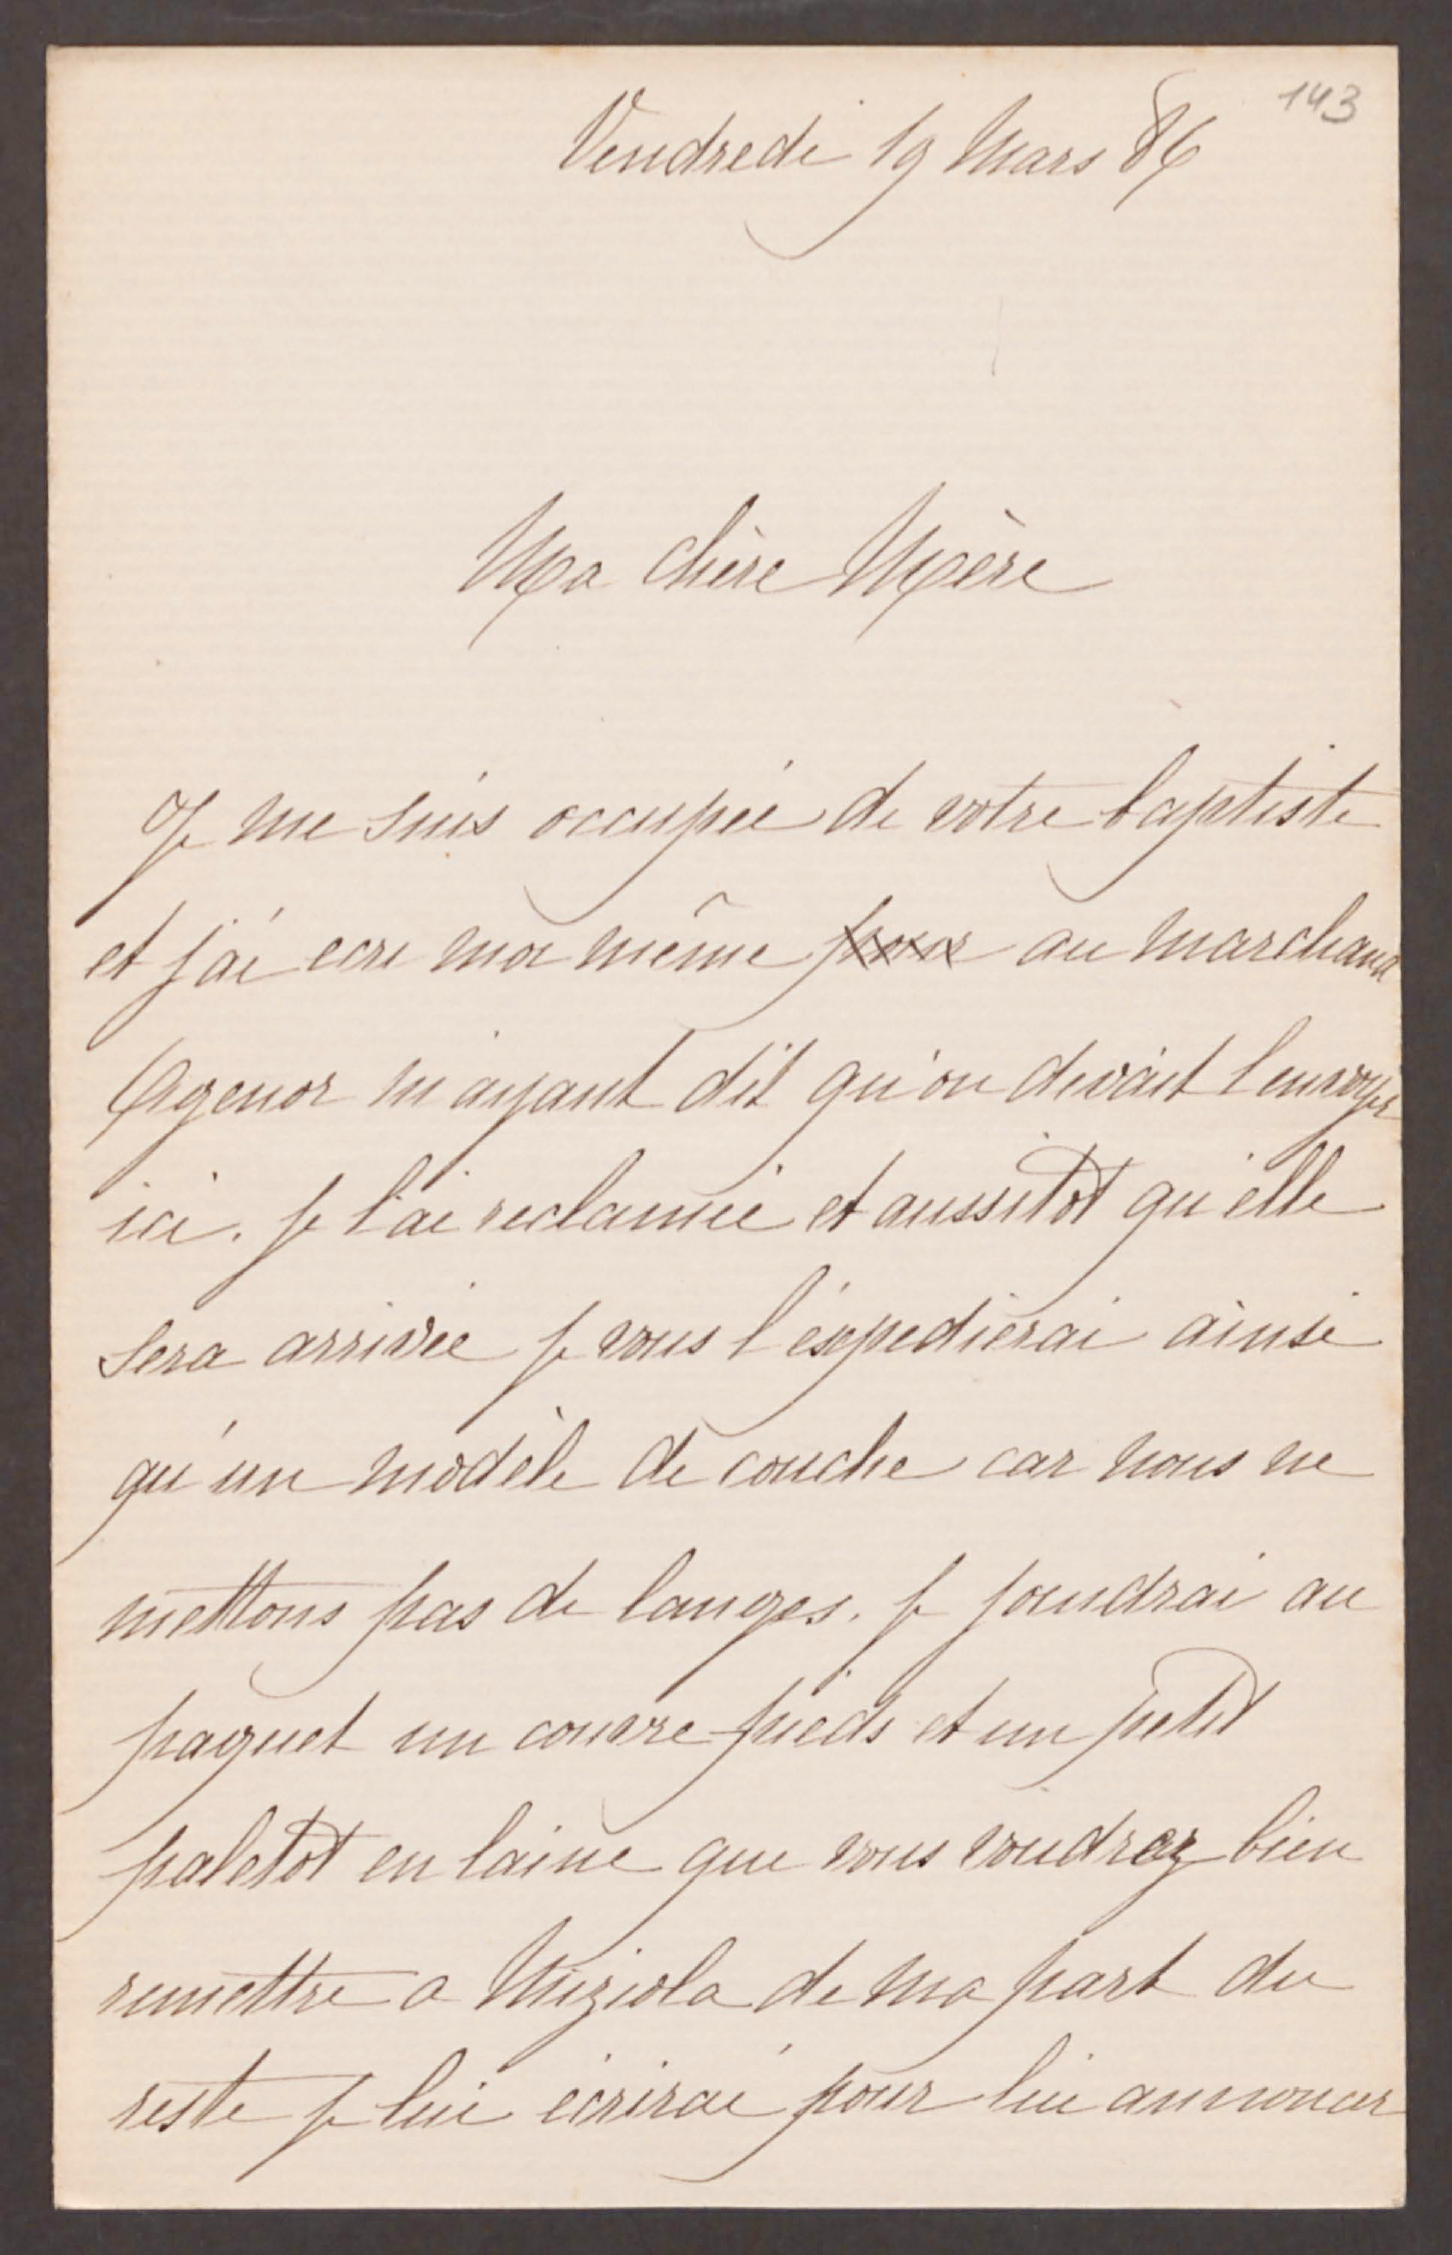 143
Vendredi 19 Mars 86
Ma chère Mère
Je me suis occupée de votre baptiste
et j'ai ecri moi même pour au marchand
Agenor m'ayant dit qu'on devait l'envoyer
ici. Je l'ai reclamée et aussitôt qu'elle
sera arrivée je vous l'éxpedierai ainsi
qu'un modèle de couche car nous ne
mettons pas de langes. Je joindrai au
paquet un couvre-pieds et un petit
paletôt en laine que vous voudrez bien
remettre a Miziola de ma part du
reste je lui écrirai pour lui annoncer